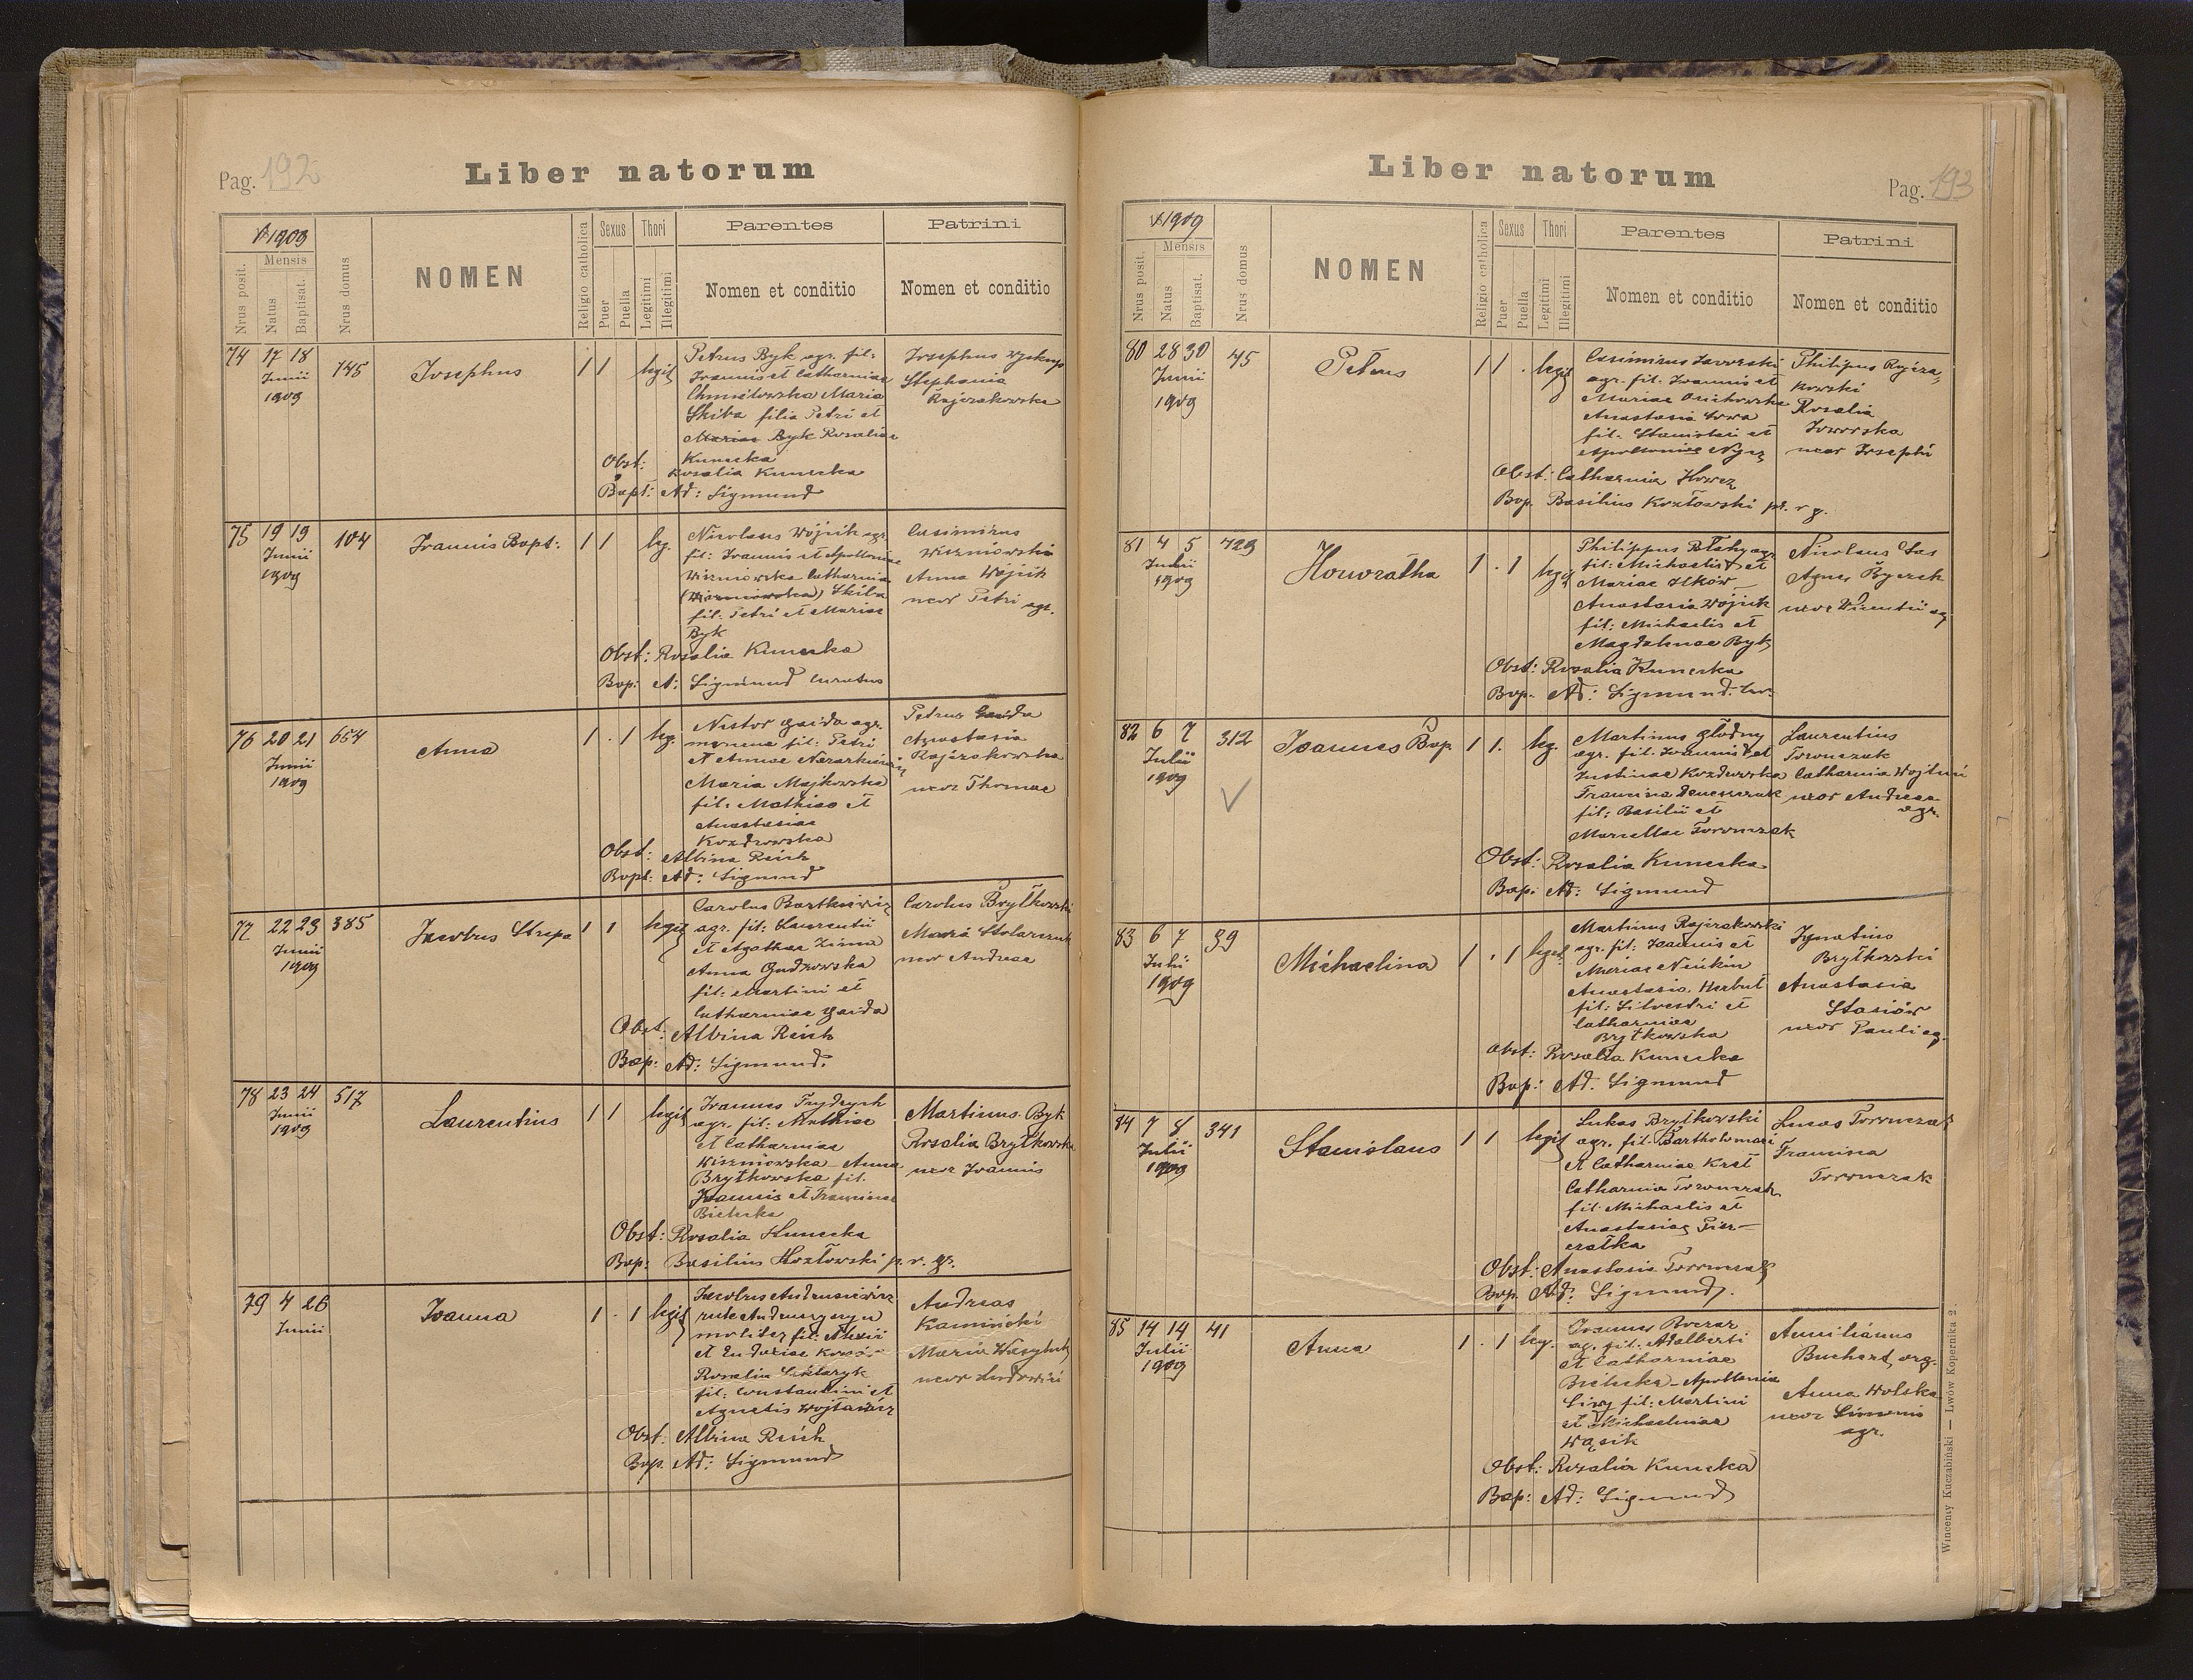 Pag. 192
Liber natorum
1909
Mensis
Nrus posit.
Natus
Baptisat.
Nrus domus
NOMEN
Religio catholica
Sexus
Puer
Puella
Thori
Legitimi
Illegitimi
Parentes
Nomen et conditio
Patrini
Nomen et conditio
74 17 18 145 Josephus 1 1 legit
Junii
1909
Petrus Byk agr. fil:
Joannis et Catharinae
Chmielowska Maria
Skiba filia Petri et
Mariae Byk Rosaliae
Kunecka
Josephus
Stephania
Rajzakowska
Obst: Rosalia Kunecka
Bapt: Ad: Sigmund
75 19 19 104 Joannis Bapt: 1 1 leg.
Junii
1909
Nicolaus Wójcik agr.
fil: Joannis et Apolloniae
Wiszniowska Catharina
(Wiszniowska) Skiba
fil: Petri et Mariae
Byk
Casimirus
Wiszniowski
Anna Wójcik
uxor Petri agr.
Obst: Rosalia Kunecka
Bap: A: Sigmund curatus
76 20 21 654 Anna 1 . 1 leg.
Junii
1909
Nestor Gaida agr.
fil: Petri
et Annae
Maria Majkowska
fil: Mathiae et
Anastasiae
Kozdrowska
Petrus Gaida
Anastasia
Rajzakowska
uxor Thomae
Obst: Albina Reich
Bapt: Ad: Sigmund
77 22 23 385 Jacobus Strepa 1 1 legit
Junii
1909
Carolus Bartkiewicz
agr. fil: Laurentii
et Agathae Zima
Anna Gudzowska
fil: Martini et
Catharinae Gaida
Carolus Brytkowski
Maria Stolarczuk
uxor Andreae
Obst: Albina Reich
Bap: Ad: Sigmund.
78 23 24 517 Laurentius 1 1 legit
Junii
1909
Joannes Frydrych
agr. fil: Mathiae
et Catharinae
Wiszniowska - Anna
Brytkowska fil.
Joannis et Franciscae
Bielecka
Martinus Byk
Rosalia Brytkowska
uxor Joannis
Obst: Rosalia Kunecka
Bap: Basilius Kozłowski p. r. gr.
79 4 26 Joanna 1 . 1 legit
Junii
Jacobus Andrusiewicz
molitor fil: Alexii
et Eudoxiae
Rosalia
fil: Constantini et
Agnetis Wojtowicz
Andreas
Kamiński
Maria
uxor Ludovici
Obst. Albina Reich
Bap. Ad: Sigmund
Liber natorum
Pag. 193
1909
Mensis
Nrus posit.
Natus
Baptisat.
Nrus domus
NOMEN
Religio catholica
Sexus
Puer
Puella
Thori
Legitimi
Illegitimi
Parentes
Nomen et conditio
Patrini
Nomen et conditio
80 28 30 45 Petrus 1 1 . legit
Junii
1909
Casimirus Jaworski
agr. fil. Joannis et
Mariae
Anastasia Sowa
fil. Stanislai et
Apolloniae
Philipus Rajza-
kowski
Rosalia
Jaworska
uxor Josephi
Obst: Catharina
Bap. Basilius Kozłowski pr. r g.
81 4 5 729 Honoratha 1 . 1 legit
Julii
1909
Philippus Błahy agr.
fil: Michaelis et
Mariae Ilków
Anastasia Wójcik
fil: Michaelis et
Magdalenae Byk
Nicolaus Sas
Agnes
uxor Vincentii agr
Obst: Rosalia Kunecka
Bap. Ad: Sigmund. cur.
82 6 7 312 Joannes Bap 1 1. leg.
Julii
1909
Martinus Głodny
agr. fil. Joannis et
Justinae Kozdrowska
Francisca
fil: Basilii et
Marcellae Toronczak
Laurentius
Toronczak
Catharina
uxor Andreae
agr.
Obst: Rosalia Kunecka
Bap: Ad: Sigmund
83 6 7 39 Michaelina 1 . 1 legit.
Julii
1909
Martinus Rajzakowski
agr. fil: Joannis et
Mariae
Anastasia Herbut
fil: Silvestri et
Catharinae
Brytkowska
Ignatius
Brytkowski
Anastasia
Stasiów
uxor Pauli agr.
Obst: Rosalia Kunecka
Bap: Ad. Sigmund
84 7 8 341 Stanislaus 1 1 legit
Julii
1909
Lukas Brytkowski
agr. fil. Bartholomaei
et Catharinae Kret
Catharina Toronczak
fil Michaelis et
Anastasiae
Lucas Toronczak
Francisca
Toronczak
Obst: Anastasia Toronczak
Bap. Ad: Sigmund.
85 14 14 41 Anna 1 . 1 leg.
Julii
1909
Joannes
ag. fil. Adalberti
et Catharinae
Bielecka - Apollonia
fil: Martini
et Michaelinae
Wąsik
Aemilianus
Buchert org.
Anna Wolska
uxor Simonis
agr.
Obst: Rosalia Kunecka
Bap: Ad: Sigmund
Winceny Kuczabiński — Lwów Kopernika 2.